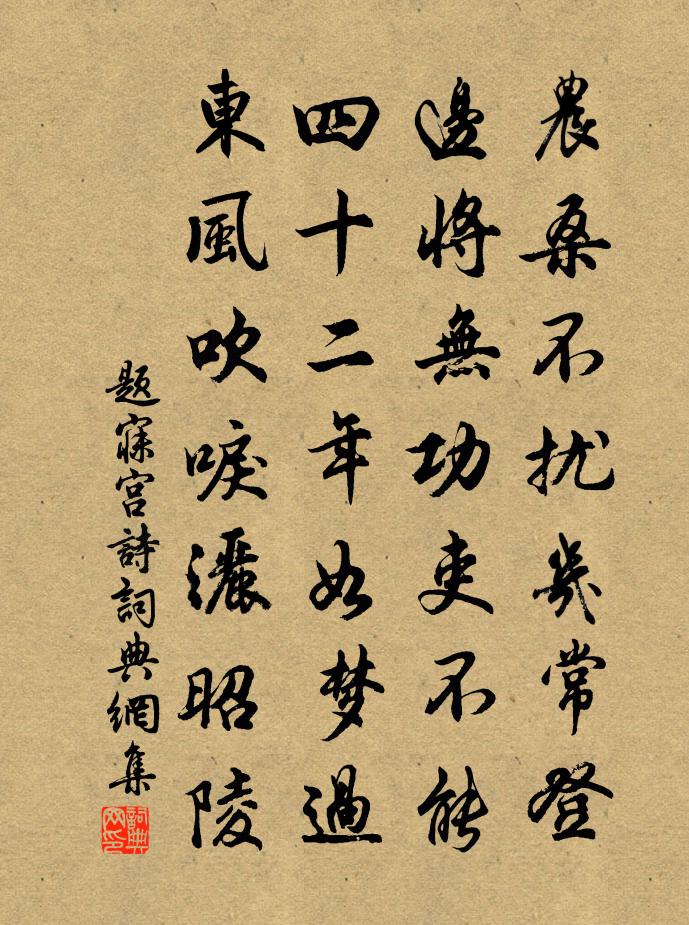 農桑不扰歲常登
邊將無功吏不能
四十二年如梦過
東風吹唳灑昭陵
题寐宮詩詞典網集
詞典
网印